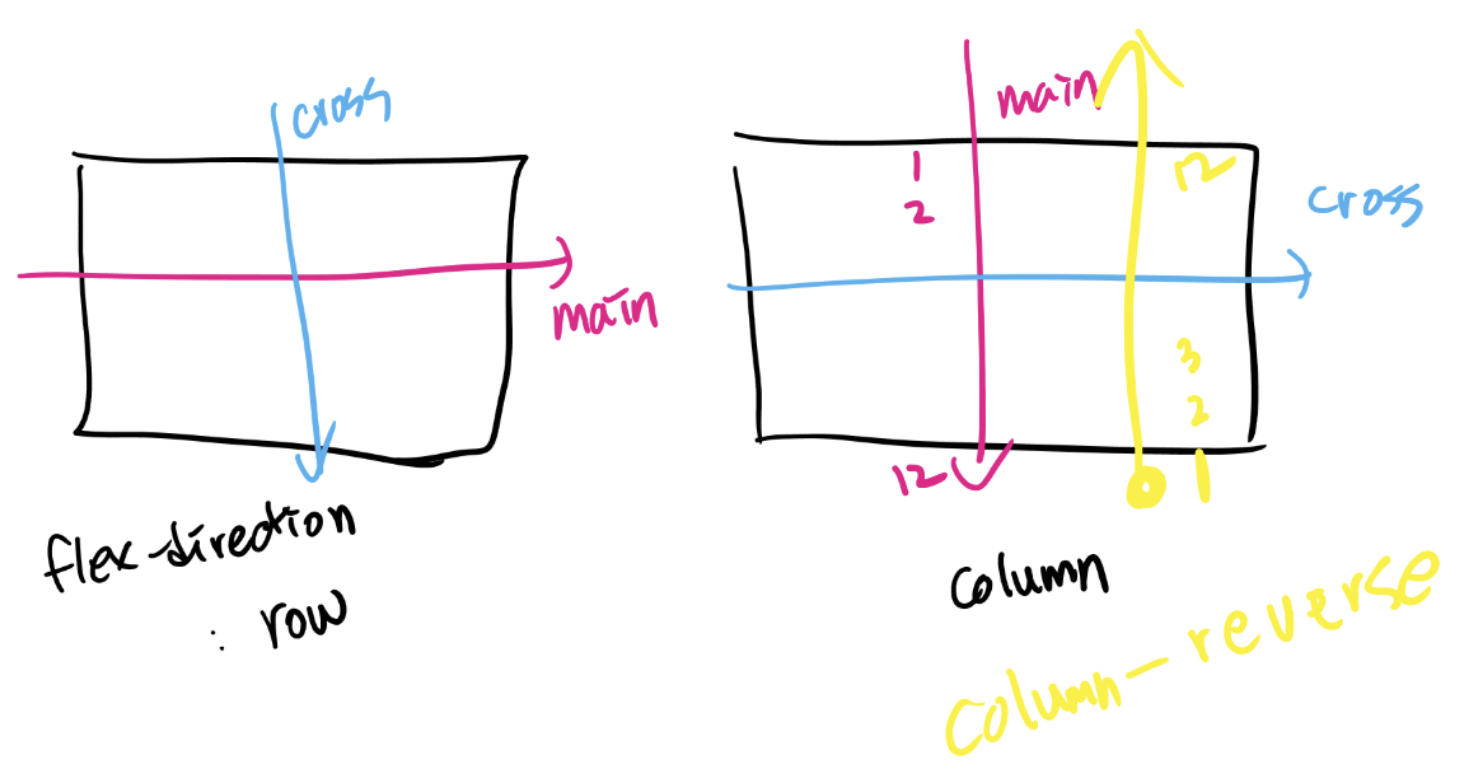 cross
main
flex-direction
: row
main
cross
1
2
12
12
3
2
1
column
column-reverse